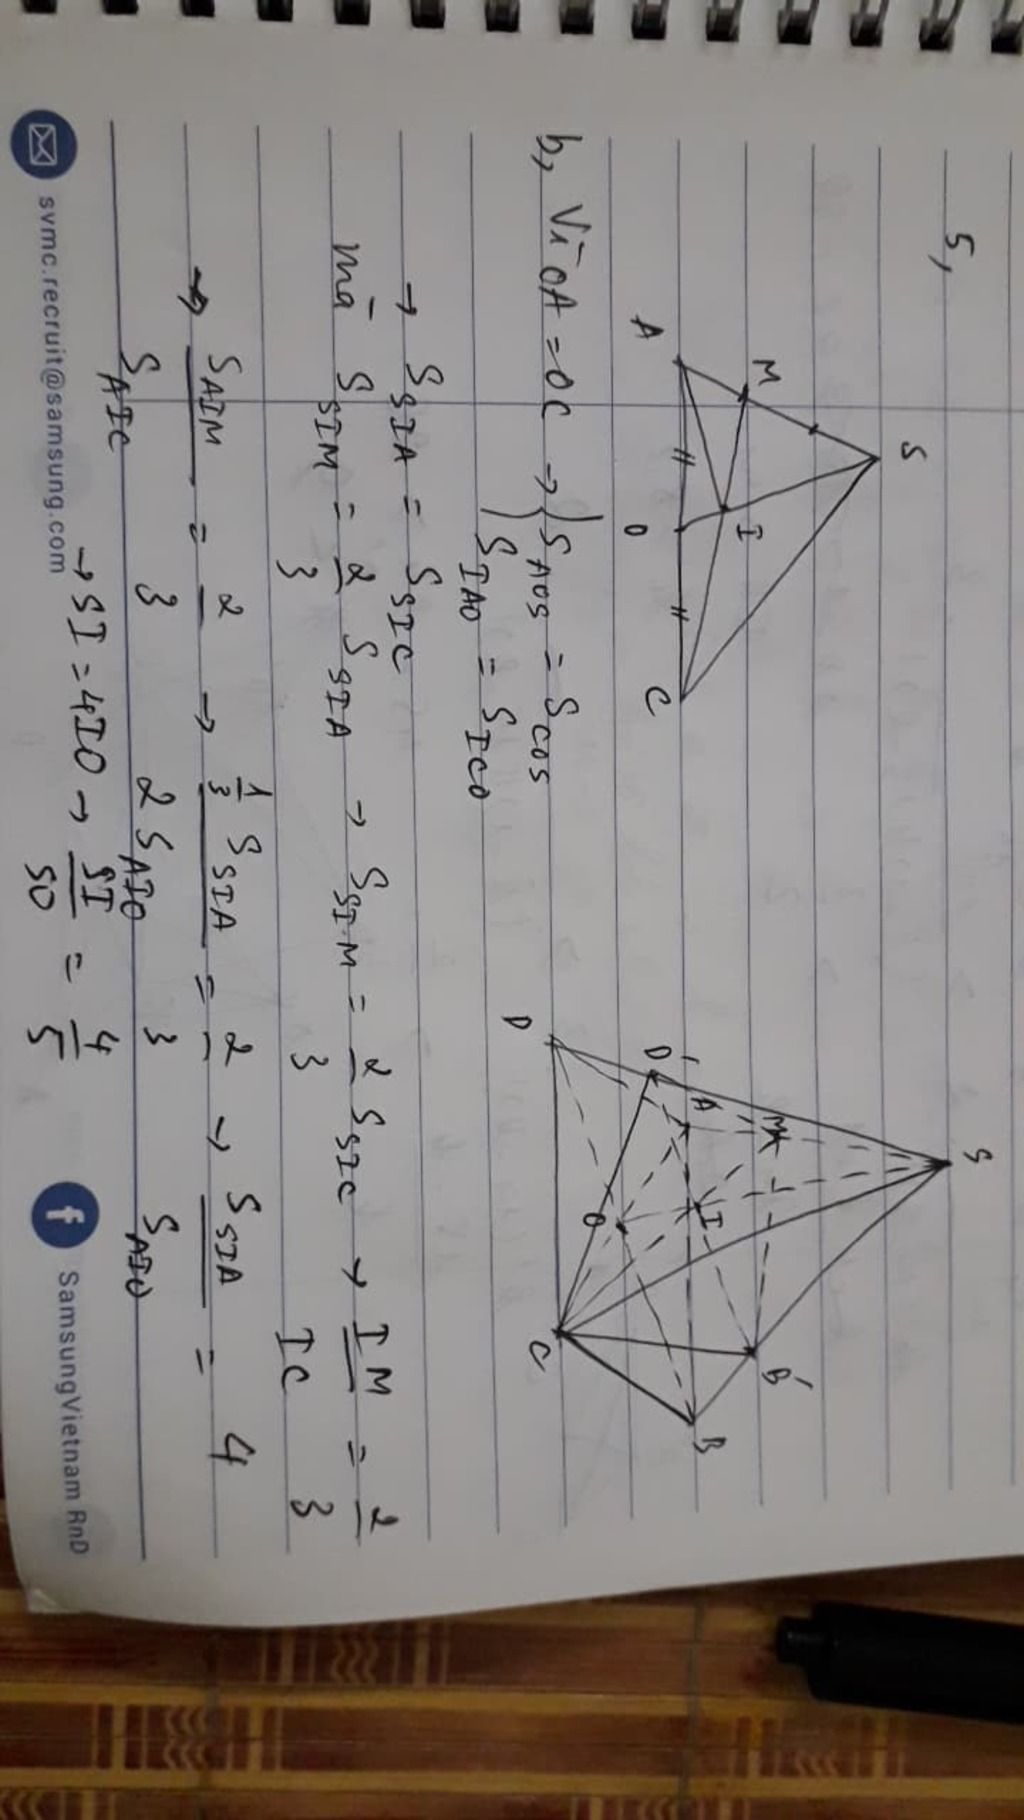 5,
S
M
I
A
O
C
S
M
A
D'
I
B'
D
O
B
C
b, Vì OA = OC → { S_AOS = S_COS
S_IAO = S_ICO
→ S_SIA = S_SIC
mà S_SIM = 2/3 S_SIA → S_SIM = 2/3 S_SIC → IM/IC = 2/3
→ S_AIM/S_AIC = 2/3 → 1/3 S_SIA/2 S_AIO = 2/3 → S_SIA/S_AIO = 4
→ SI = 4IO → SI/SO = 4/5
svmc.recruit@samsung.com
f SamsungVietnam RnD